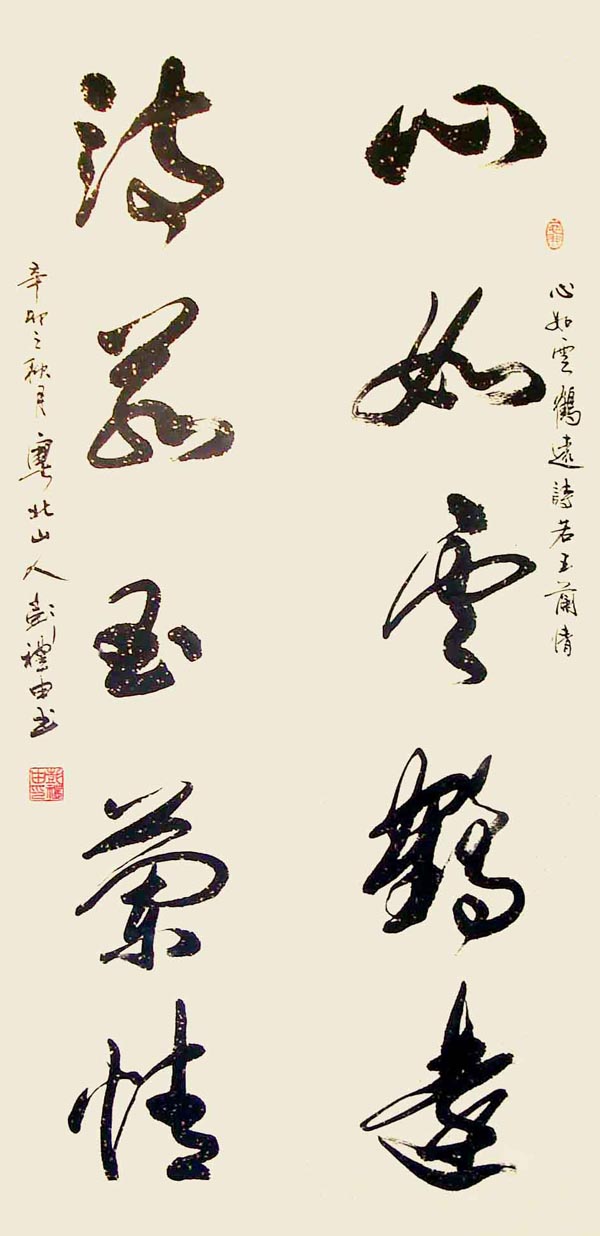 心如雲鶴遠詩若玉蘭情
心如雲鶴遠
詩若玉蘭情
辛卯之秋月粵北山人彭禮由書